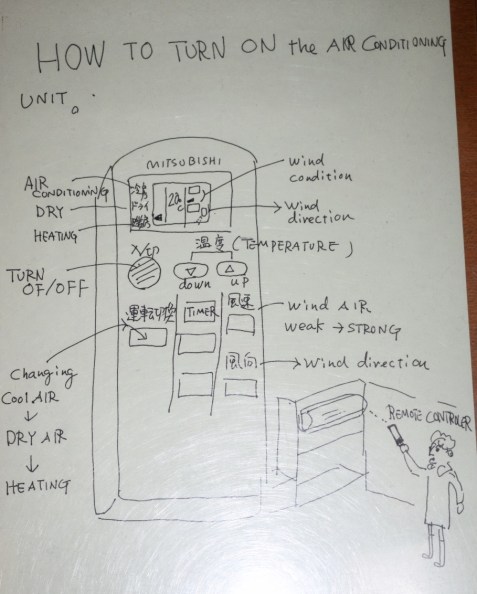 HOW TO TURN ON the AIR CONDITIONING
UNIT。
MITSUBISHI
AIR
CONDITIONING
DRY
HEATING
冷房
ドライ
暖房
20
℃
wind
condition
wind
direction
入/切
TURN
OF/OFF
温度 (TEMPERATURE)
down
UP
運転切換
TIMER
風速
Wind AIR
weak → STRONG
風向
→ Wind direction
Changing
Cool AIR
↓
DRY AIR
↓
HEATING
REMOTE CONTROLER